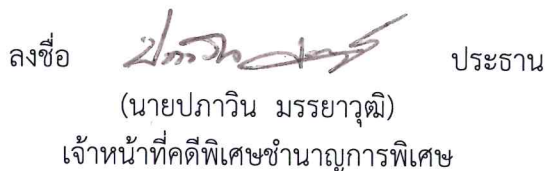 ลงชื่อ ประธาน
(นายปภาวิน มรรยาวุฒิ)
เจ้าหน้าที่คดีพิเศษชำนาญการพิเศษ